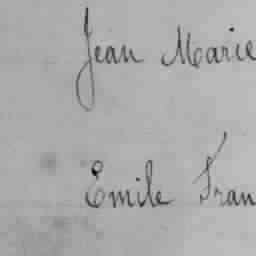 Jean Marie
Emile Fran